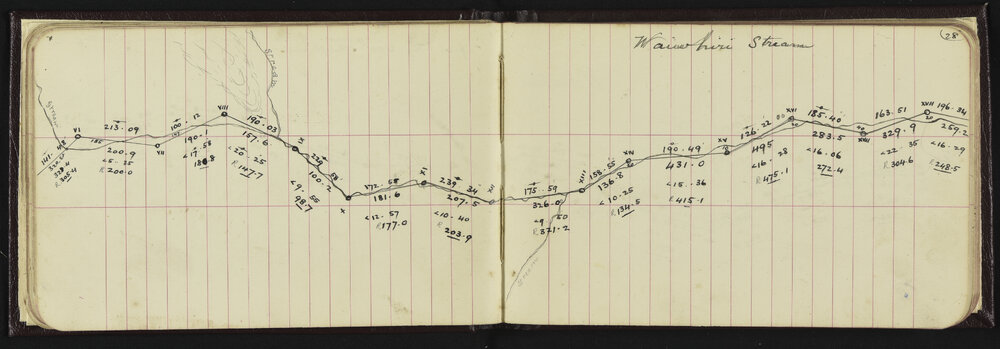 28
Stream
Stream
VI
213·09
200.9
<5·25
R200.0
VII
100·12
190·1
<17·58
VIII
190·03
157.6
<20·25
R147.7
IX
100.2
<9·55
98.7
X
172·58
181.6
<12·57
R177.0
XI
239·34
207.5
<10·40
R203.9
XII
175·59
326.0
<9 50
R321.2
Stream
XIII
158·55
136.8
<10·25
R134.5
XIV
190·49
431.0
<15·36
R415.1
XV
126·22
495
<16·28
R475.1
XVI
185·40
283.5
<16·06
272.4
163·51
329.9
<22·35
R304.6
XVIII
196·34
259.2
<16·29
R248.5